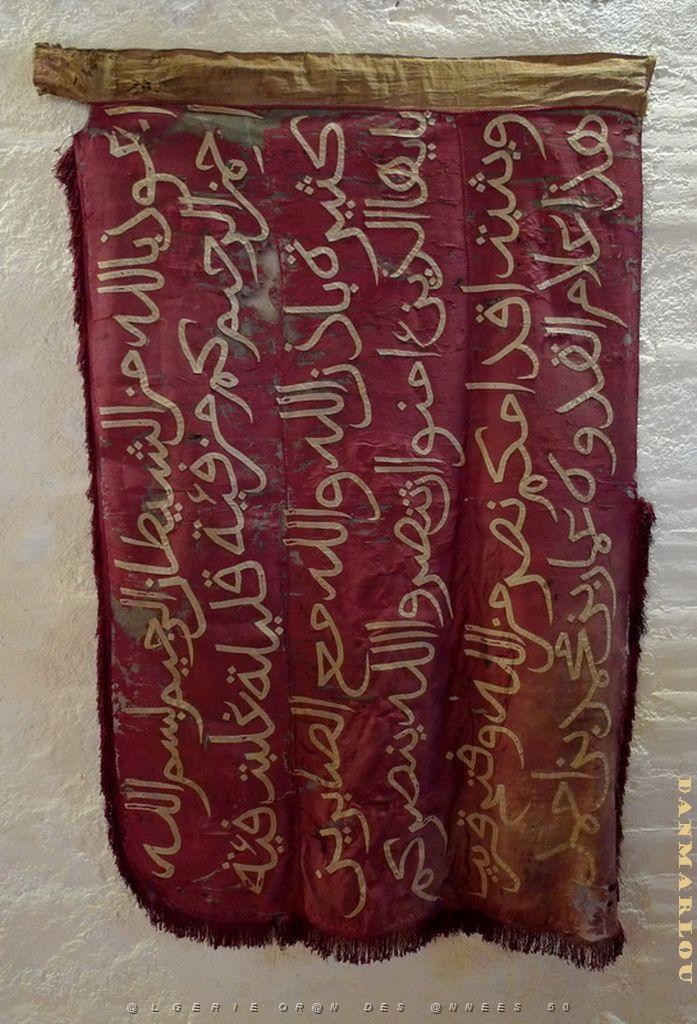 اعوذ بالله من الشيطان الرجيم بسم الله
الرحمن الرحيم كم من فئة قليلة غلبت فئة
كثيرة باذن الله والله مع الصابرين
يايها الذين ءامنوا ان تنصروا الله ينصركم
ويثبت اقدامكم نصر من الله وفتح قريب
هذا علام القدوة عمار بن محمد بن احمد
DANMARLOU
@LGERIE OR@N DES @NNEES 50